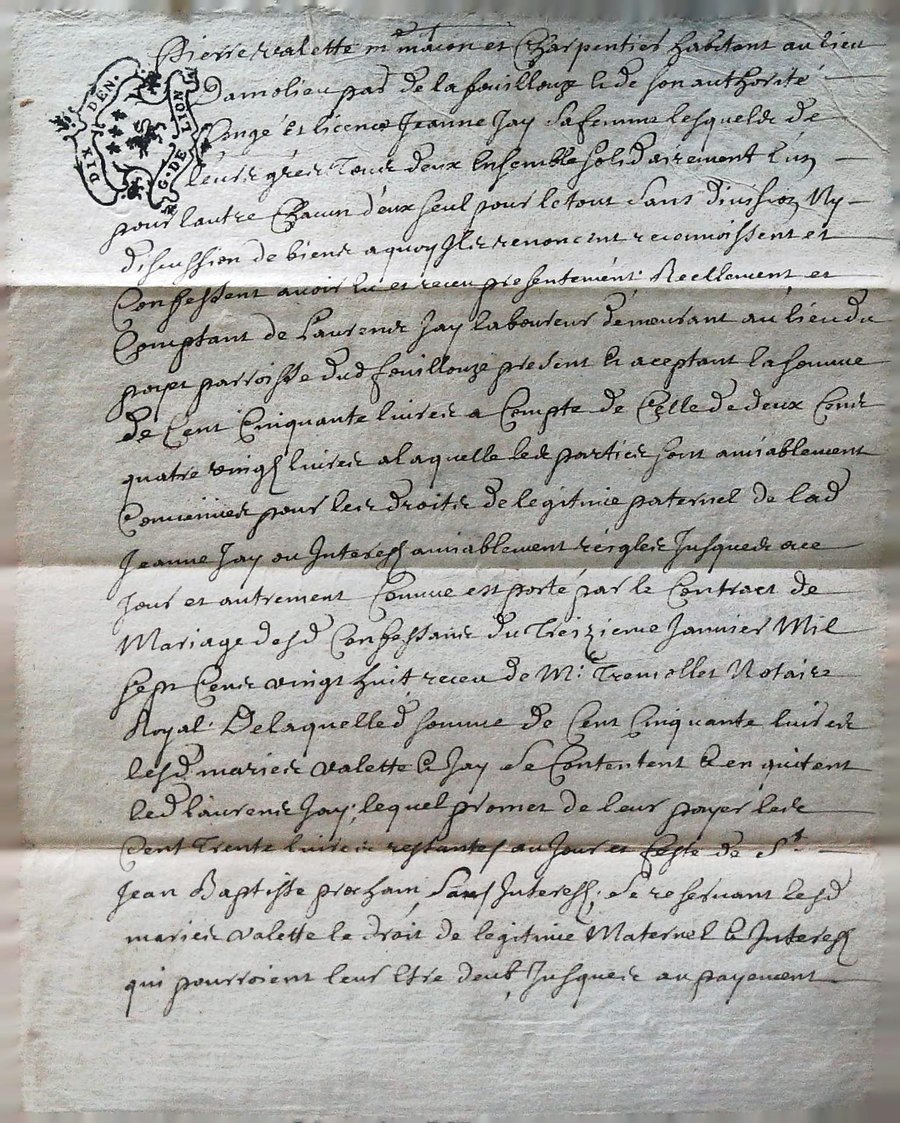 DIX DEN.
G. DE LION
Pierre valette m.e macon et Charpentier habitant au lieu
Damolieu par de la fouillouze & de son authorité
Congé Et licence Jeanne Jay sa femme lesquels de
leurs grés Tous deux Ensemble solidairement l'un
pour lautre Chacun d'eux seul pour le tout Sans division Ny
discussion de biens a quoy Ils renoncent reconnoissent et
Confessent avoir Eu et receu presentement Reellement et
Comptant de Laurens Jay laboureur demeurant au lieu du
parroisse dud fouillouze present & aceptant la somme
de Cent Cinquante livres a Compte de Celle de deux Cens
quatre vingt livres a laquelle les parties sont amiablement
Convenues pour les droits de legitime paternel de lad
Jeanne Jay ou Interest amiablement reigles Jusques a ce
Jour et autrement Comme est porté par le Contract de
Mariage desd Confessans du Treizieme Janvier Mil
sept Cens vingt huit receu de M.e Tremollet Notaire
Royal Delaquelled somme de Cent Cinquante livres
lesd maries valette & Jay se Contentent & en quitent
led laurens Jay, lequel promet de leur payer les
Cent Trente livres restantes au Jour et feste de S.t
Jean Baptiste prochain, Sans Interest, se reservant lesd
maries valette le droit de legitime Maternel & Interest
qui pourroient leur Etre deub, Jusques au payement